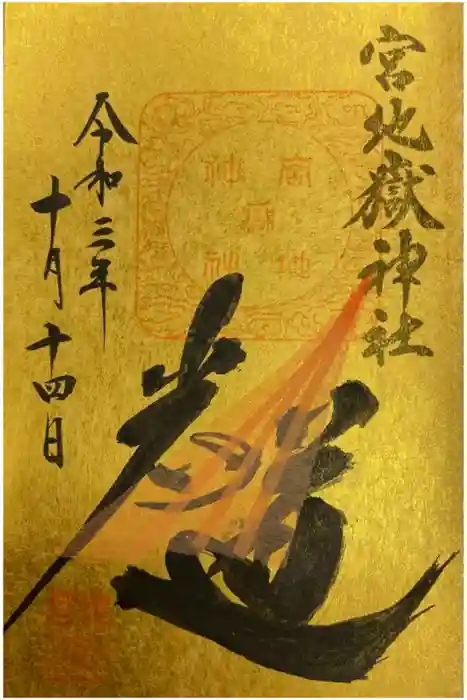 宮地嶽神社
光道
令和三年
十月十四日
宮地
嶽
神社